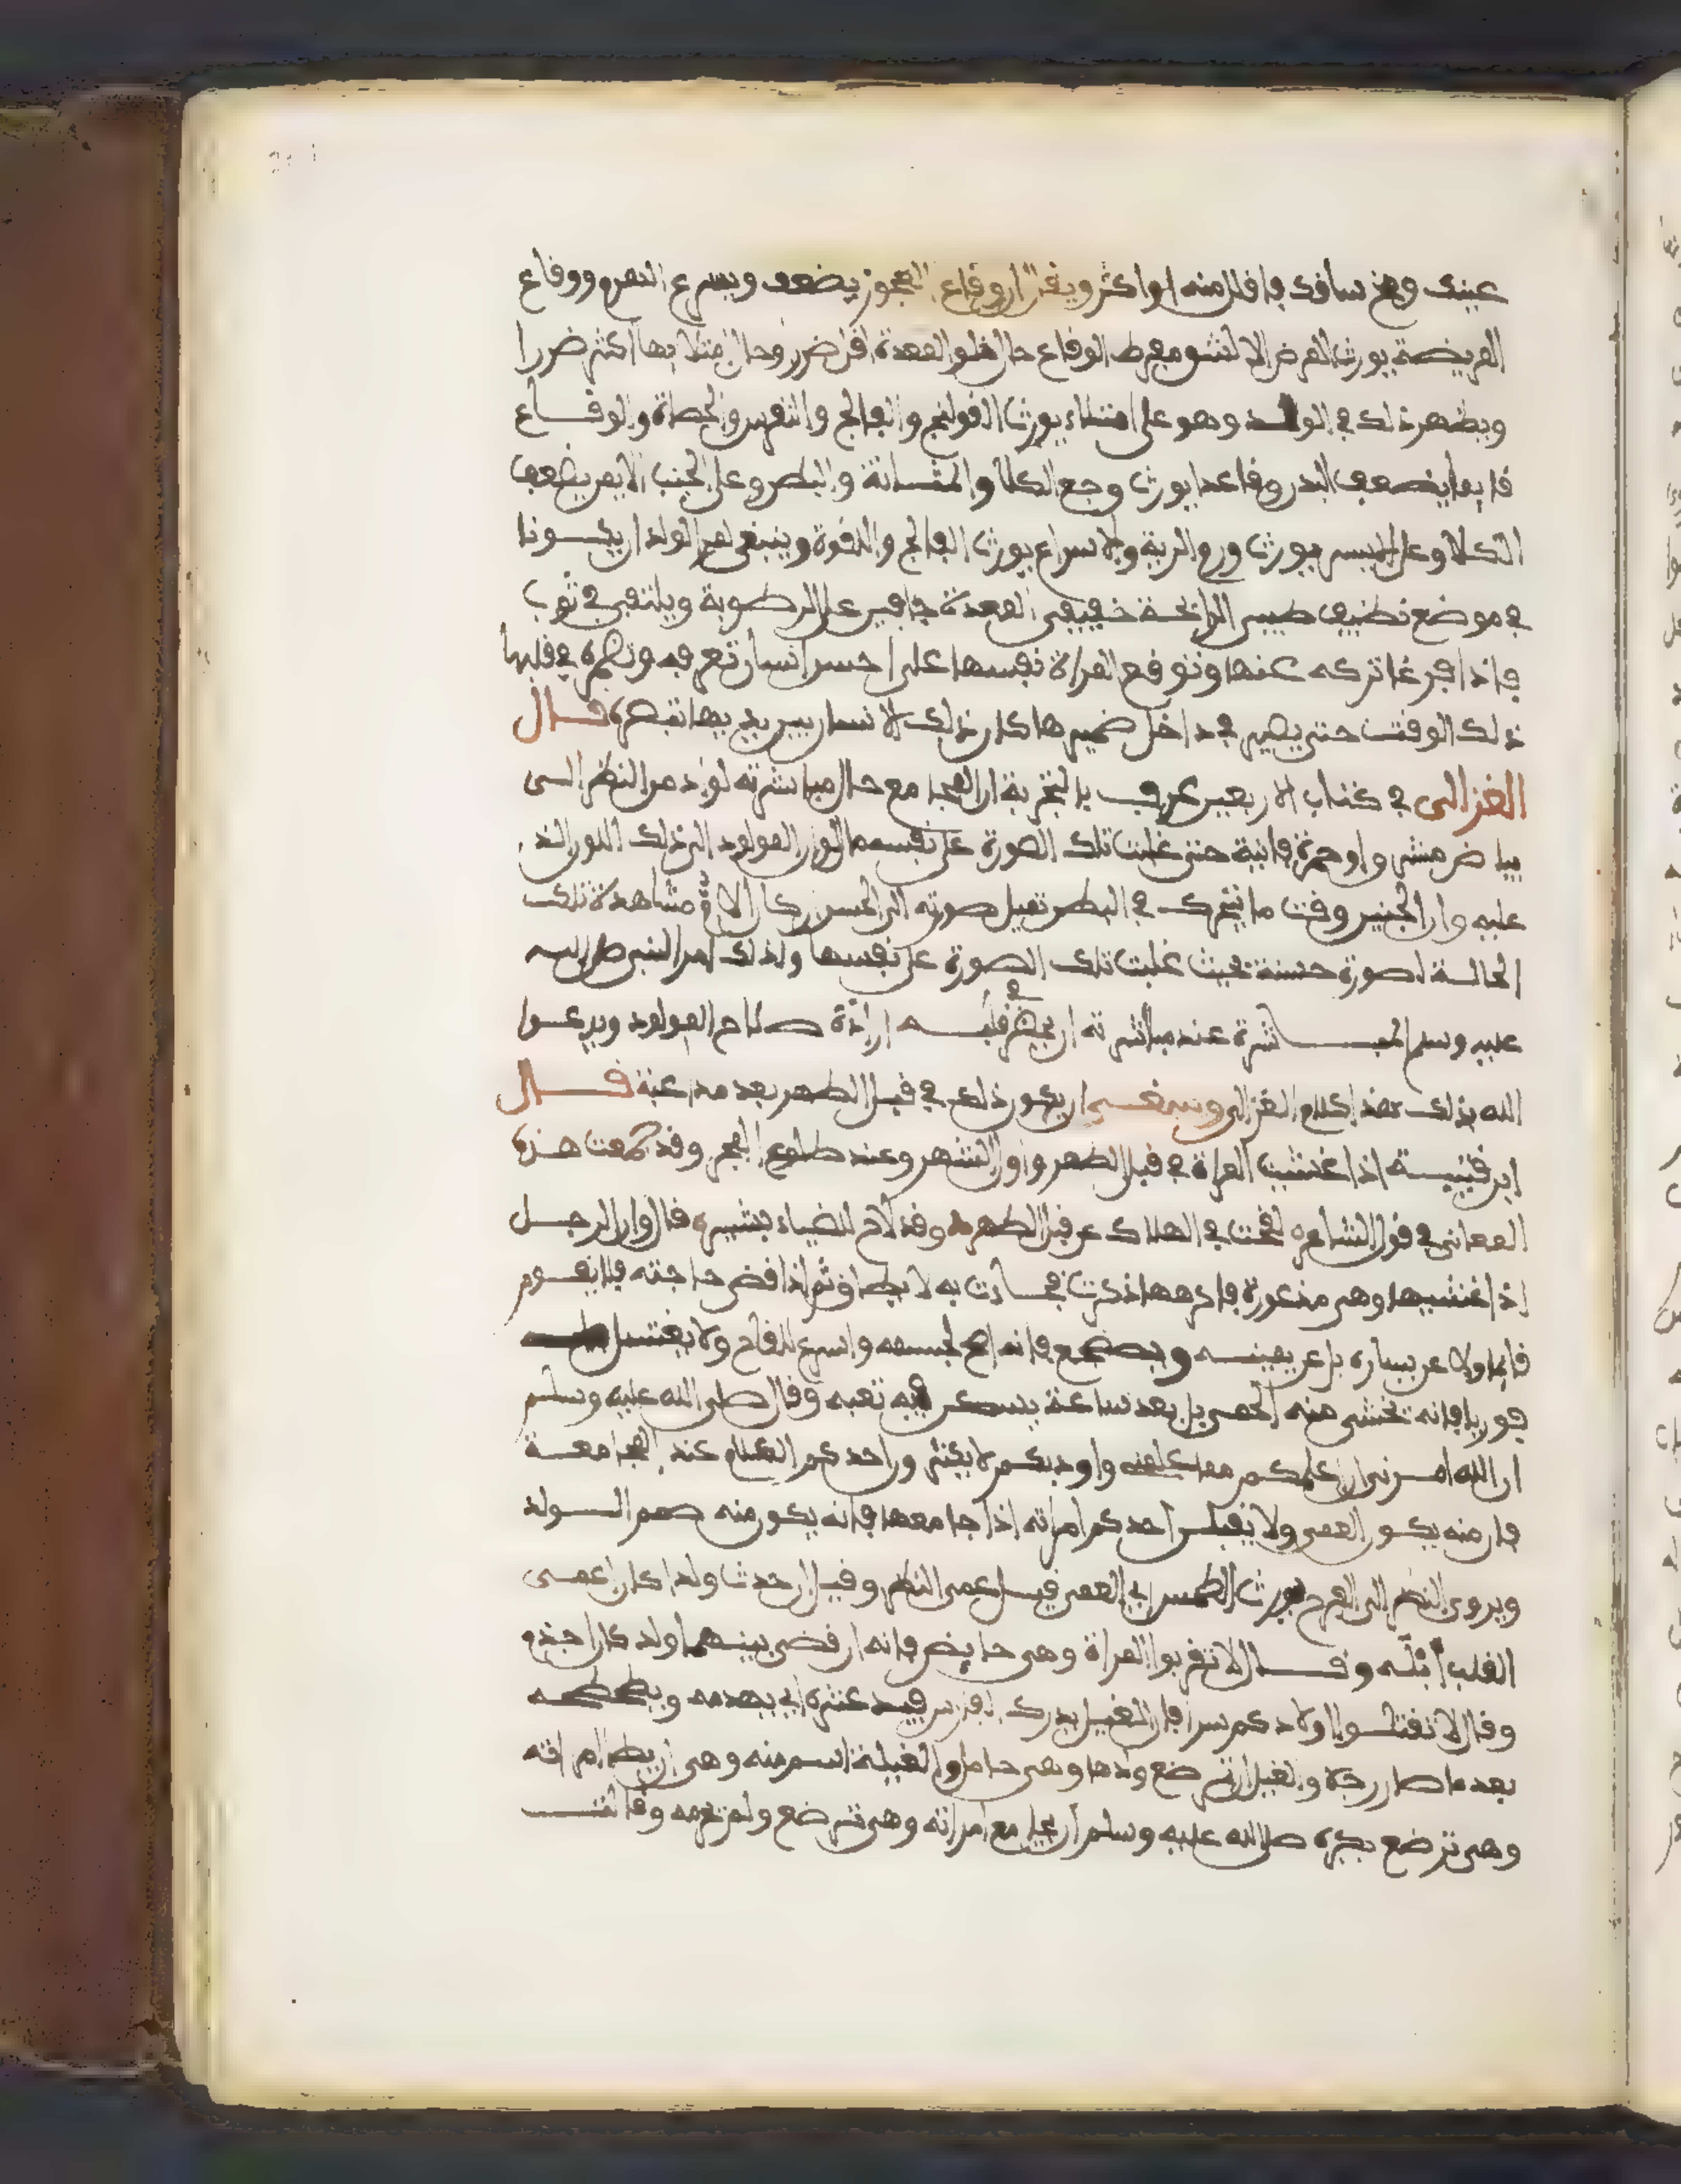 عينك ومخ ساقك فاقلل منه او اكثر ويقال ان وقاع العجوز يضعف ويسرع الهرم ووقاع
المريضة يورث المرض الا لشو مفرط الوقاع حال خلو المعدة اقل ضرر وحال امتلايها اكثر ضررا
ويظهر ذلك في الولد وهو على امتلاء يورث القولنج والفالج والنقرس والحصاة والوقاع
قايما يضعف البدن وقاعدا يورث وجع الكلا والمثانة والبطن وعلى الجنب الايمن يضعف
الكلا وعلى اليسر يورث ورم الرية والاسراع يورث الفالج واللقوة وينبغي لمن الولد ان يكونا
في موضع نظيف طيبي الرائحة خفيفي المعدة جافين على الرطوبة ويلتفى في ثوب
فاذا فرغا تركه عنها وتوقع المراة نفسها على احسن انسان تعرفه وتظهره في قلبها
ذلك الوقت حتى يصير في داخل ضميرها كان ذلك الانسان بين يديها تبصره قال
الغزالي في كتاب الاربعين عرف بالتجربة ان المجامع حال مباشرته لو ادمن النظر الى
بياض مشرق او حمرة قانية حتى غلبت تلك الصورة على نفسه مال لون المولود الى ذلك اللون الذ
عليه وان الجنين وقت ما يتحرك في البطن تميل صورته الى الحسن ان كان الام مشاهدة تلك
الحالة لصورة حسنة بحيث غلبت تلك الصورة على نفسها ولذلك امر النبي صلى الله
عليه وسلم المباشرة عند مباشرته ان يحضر في قلبه ارادة صلاح المولود ويدعوا
الله بذلك هذا كلام الغزالي وينبغي ان يكون ذلك في قبل الطهر بعد مداعبة قال
ابن قتيبة اذا غشيت المراة في قبل الطهر واول الشهر وعند طلوع الفجر وقد جمعت هذه
المعاني في قول الشاعر لقحت في الهلال عن قبل الطهر وقد لاح للضياء بشير قال وان الرجل
اذا غشيها وهي مذعورة فاكرهها اذكرت فجاءت به لا يطاق ثم اذا قضى حاجته فلا يقوم
قايما ولا عن يساره بل عن يمينه ويضطجع فانه اصح لجسمه واسرع للقاح ولا يغتسل
فوريا فانه تخشى منه الحمى بل بعد ساعة يسكن فيه تعبه وقال صلى الله عليه وسلم
ان الله امرني ان اعلمكم مما علمني واودبكم لا يكثرن احدكم الكلام عند المجامعة
فان منه يكون العمى ولا يقبلن احدكم امراته اذا جامعها فانه يكون منه صمم الولد
ويروى النظر الى الفرج يورث الطمس اي العمى قيل عمى النظر وقيل ان حدث ولد اكان اعمى
القلب ابله وقال لا تقربوا المراة وهي حايض فانه ان قضي بينهما ولد كان اجذم
وقال لا تقتلوا اولادكم سرا فان الغيل يدرك الفارس فيدعثره اي يهدمه ويطحطحه
بعد ما صار رجلا والغيل ان ترضع ولدها وهي حامل والغيلة اسم منه وهي ان يطا امراته
وهي ترضع يكره صلى الله عليه وسلم ان يجامع امراته وهي ترضع ولم نحرمه وقالت